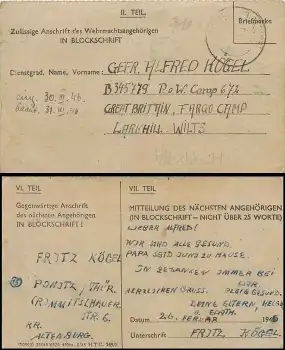 II. TEIL.
Briefmarke
Zulässige Anschrift des Wehrmachtsangehörigen
IN BLOCKSCHRIFT
Dienstgrad, Name, Vorname:
GEFR. ALFRED KÖGEL
B345479 P.o.W. Camp 672
GREAT BRITTAIN, FARGO CAMP
LARKHILL WILTS
VI. TEIL
Gegenwärtige Anschrift
des nächsten Angehörigen
IN BLOCKSCHRIFT!
FRITZ KÖGEL
PONITZ, THÜR.
STR. 6.
KR.
ALTENBURG.
VII. TEIL
MITTEILUNG DES NÄCHSTEN ANGEHÖRIGEN
(IN BLOCKSCHRIFT – NICHT ÜBER 25 WORTE)
LIEBER ALFRED!
WIR SIND ALLE GESUND.
PAPA SEIT JUNI ZU HAUSE.
IN GEDANKEN IMMER BEI
DIR.
HERZLICHEN GRUSS. BLEIB GESUND
DEINE ELTERN, HELGA
Datum 26. FEBRUAR 1946
Unterschrift FRITZ KÖGEL